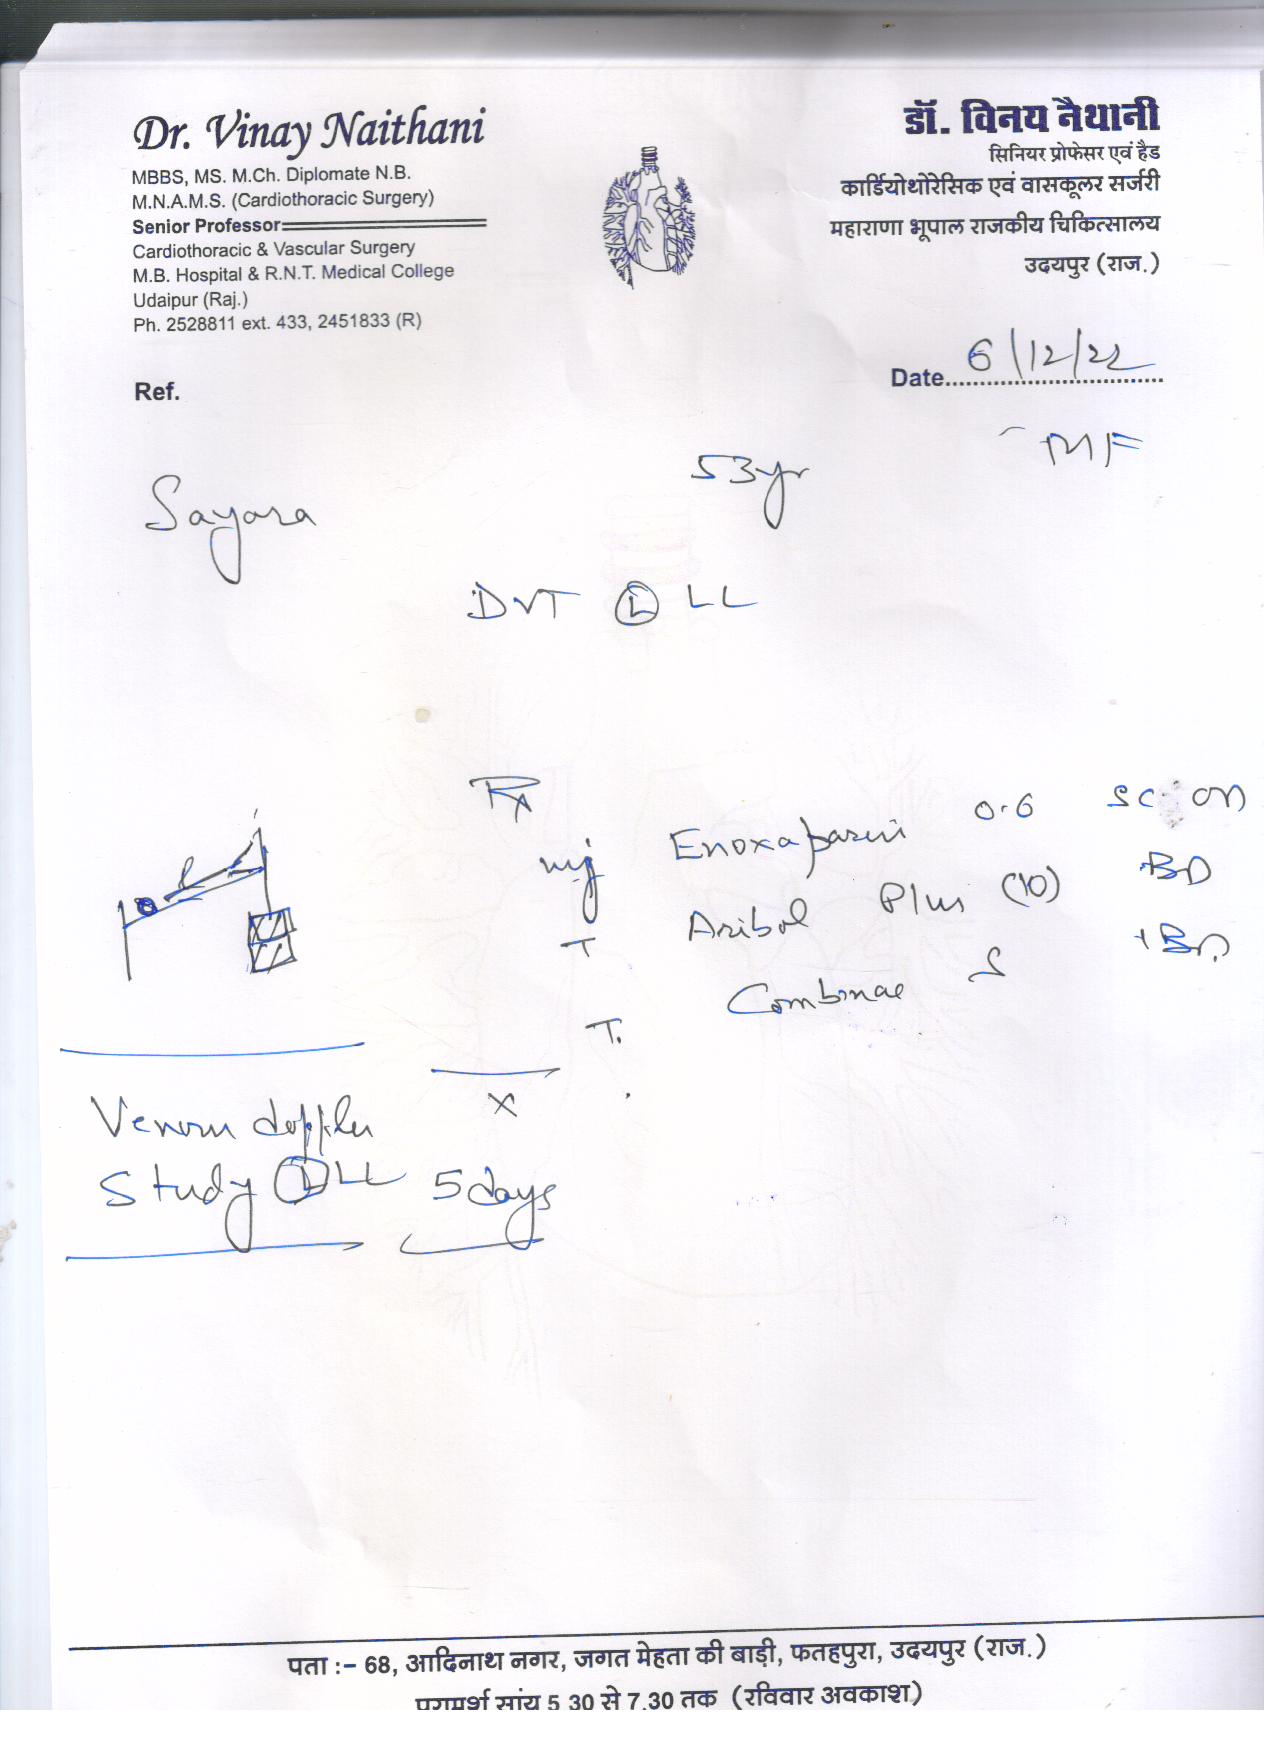 Dr. Vinay Naithani
MBBS, MS. M.Ch. Diplomate N.B.
M.N.A.M.S. (Cardiothoracic Surgery)
Senior Professor
Cardiothoracic & Vascular Surgery
M.B. Hospital & R.N.T. Medical College
Udaipur (Raj.)
Ph. 2528811 ext. 433, 2451833 (R)
डॉ. विनय नैथानी
सिनियर प्रोफेसर एवं हैड
कार्डियोथोरेसिक एवं वासकूलर सर्जरी
महाराणा भूपाल राजकीय चिकित्सालय
उदयपुर (राज.)
Ref.
Date 6/12/22
Sayara 53yr M F
DVT L LL
Rx
inj Enoxaparin 0.6 SC OD
T Plus (10) BD
T. S BD
x
5 days
Venous doppler
Study L LL
पता :- 68, आदिनाथ नगर, जगत मेहता की बाड़ी, फतहपुरा, उदयपुर (राज.)
परामर्श सांय 5.30 से 7.30 तक (रविवार अवकाश)